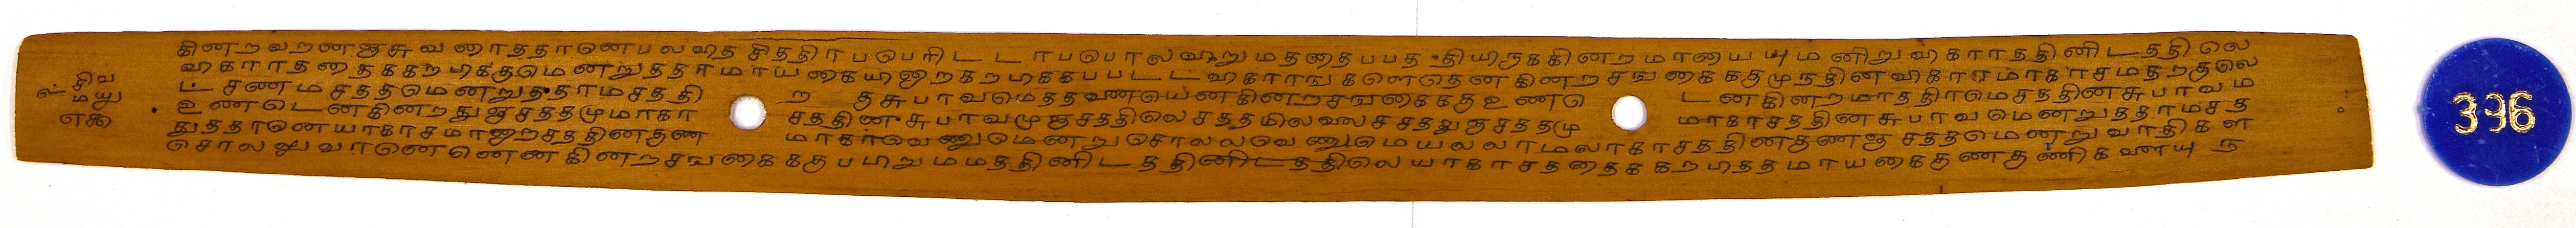 சிவ
மயூ
கினறவறணஞசுவனாததானெபலவிதசிததிரபபெரிடடாபபொலவிறுமததைபபததியிருககினறமாயையுமனிறுவிகாரததினிடததிலெ
விகாரததைககறபிககுமெனறுததாமாயகையிஞறகறபிககபபடடவிகாரஙகளெதெனகினறசஙகைககுமுநதினவிகாரமாகாசமதறகுலெ
டசணமசததமெனறுததாமசததி ற குசுபாவமெததவணயெனகினறசஙகைககுஉணடெ டனகினறமாததிரமெசததினசுபாவம
உணடெனகினறதுஞசததமுமாகா சததினசுபாவமுஞசததிலெசததமிலலைசசத்துஞசததமு மாகாசததினசுபாவமெனறுததாமசத
துததானெயாகாசமாஞறசததினகுண மாகாவெணுமெனறுசொலலவெணுமெயலலாமலாகாசததினகுணஞசததமெனறுவாதிகள
சொலலுவானெனெனகினறசஙகைககுபபிறுமமததினிடததினிடததிலெயாகாசததைககறபிததமாயகைகுணகுணிகளையு ந
336